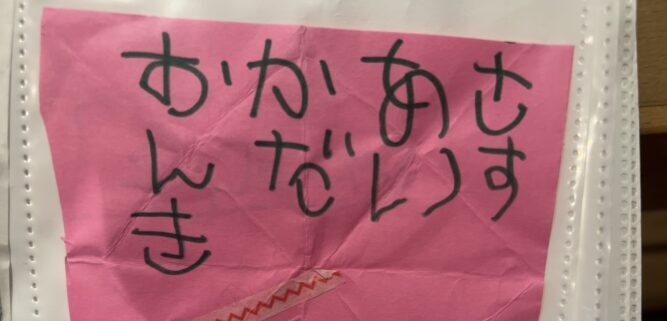 おかあさ
んだいす
き